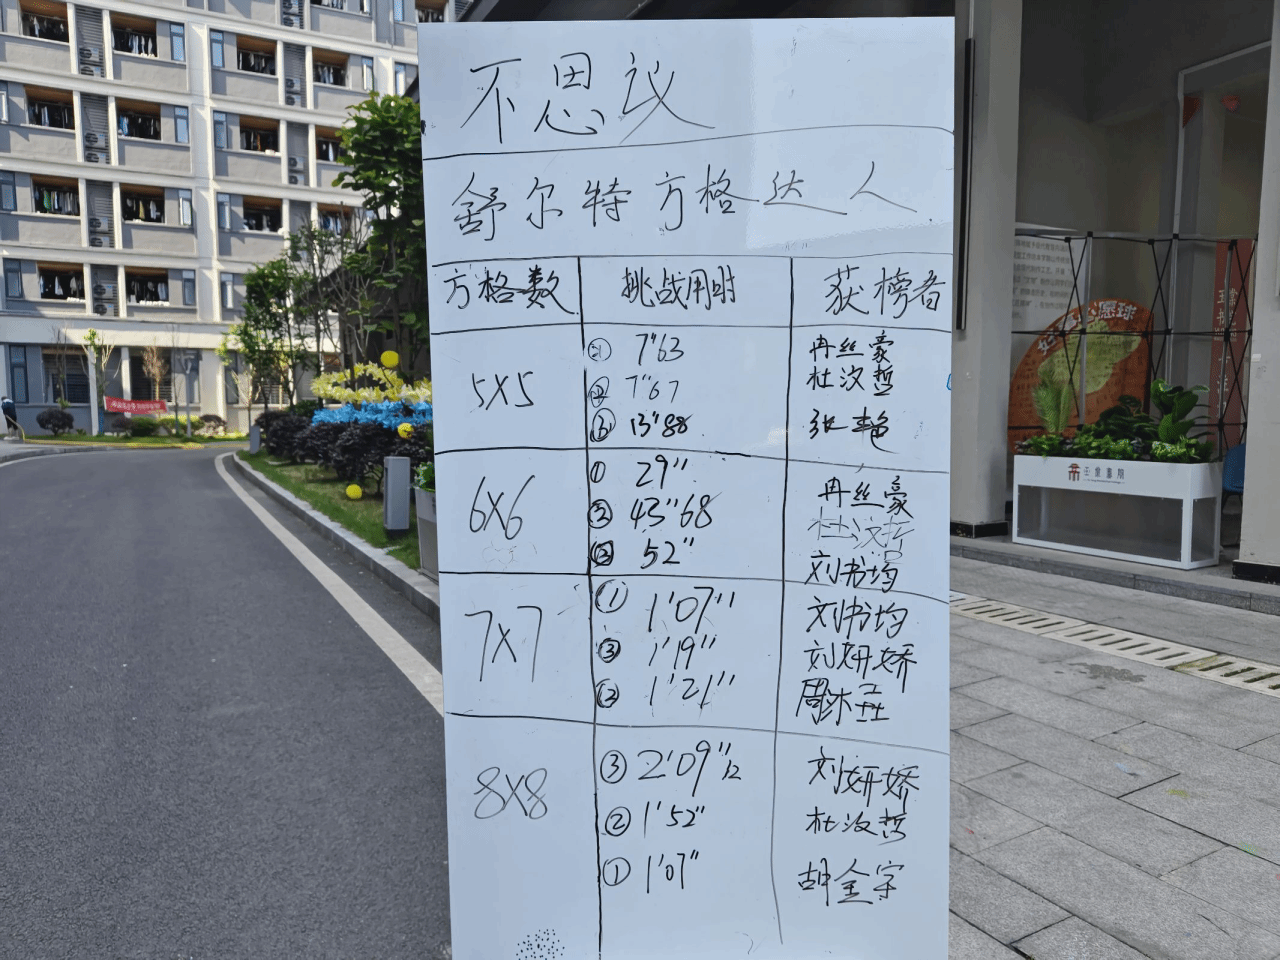 不思议
舒尔特方格达人
方格数 挑战用时 获榜者
5X5
7"63 冉丝豪
7"67 杜汶哲
13"88 张艳
6X6
① 29" 冉丝豪
③ 43"68 杜汶哲
52" 刘书均
7X7
① 1'07" 刘书均
③ 1'19" 刘妍娇
② 1'21" 周沐
8X8
③ 2'09"12 刘妍娇
② 1'52" 杜汶哲
① 1'07" 胡全宇